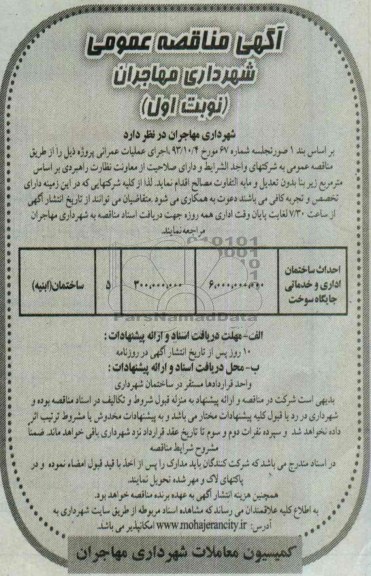 آگهی مناقصه عمومی
شهرداری مهاجران
(نوبت اول)
شهرداری مهاجران در نظر دارد
بر اساس بند ۱ صورتجلسه شماره ۶۷ مورخ ۹۳/۱۰/۴ باجرای عملیات عمرانی پروژه ذیل را از طریق
مناقصه عمومی به شرکتهای واجد الشرایط و دارای صلاحیت از معاونت نظارت راهبردی بر اساس
مترمربع زیر بنا بدون تعدیل و مابه التفاوت مصالح اقدام نماید. لذا از کلیه شرکتهایی که در این زمینه دارای
تخصص و تجربه کافی می باشند دعوت به همکاری می شود. متقاضیان می توانند از تاریخ انتشار آگهی
از ساعت ۷/۳۰ لغایت پایان وقت اداری همه روزه جهت دریافت اسناد مناقصه به شهرداری مهاجران
مراجعه نمایند.
احداث ساختمان
اداری و خدماتی
جایگاه سوخت
۶,۰۰۰,۰۰۰,۰۰۰
۳۰۰,۰۰۰,۰۰۰
۵
ساختمان(ابنیه)
ParsNamadData
الف- مهلت دریافت اسناد و ارائه پیشنهادات :
۱۰ روز پس از تاریخ انتشار آگهی در روزنامه
ب- محل دریافت اسناد و ارائه پیشنهادات :
واحد قراردادها مستقر در ساختمان شهرداری
بدیهی است شرکت در مناقصه و ارائه پیشنهاد به منزله قبول شروط و تکالیف در اسناد مناقصه بوده و
شهرداری در رد یا قبول کلیه پیشنهادات مختار می باشد و به پیشنهادات مخدوش یا مشروط ترتیب اثر
داده نخواهد شد و سپرده نفرات دوم و سوم تا تاریخ عقد قرارداد نزد شهرداری باقی خواهد ماند. ضمناً
مشروح شرایط مناقصه
در اسناد مندرج می باشد که شرکت کنندگان باید مدارک را پس از اخذ با قید قبول امضاء نموده و در
پاکتهای لاک و مهر شده تحویل نمایند.
همچنین هزینه انتشار آگهی به عهده برنده مناقصه خواهد بود.
به اطلاع کلیه علاقمندان می رساند که مشاهده اسناد مربوطه از طریق سایت شهرداری به
آدرس: www.mohajerancity.ir امکانپذیر می باشد.
کمیسیون معاملات شهرداری مهاجران